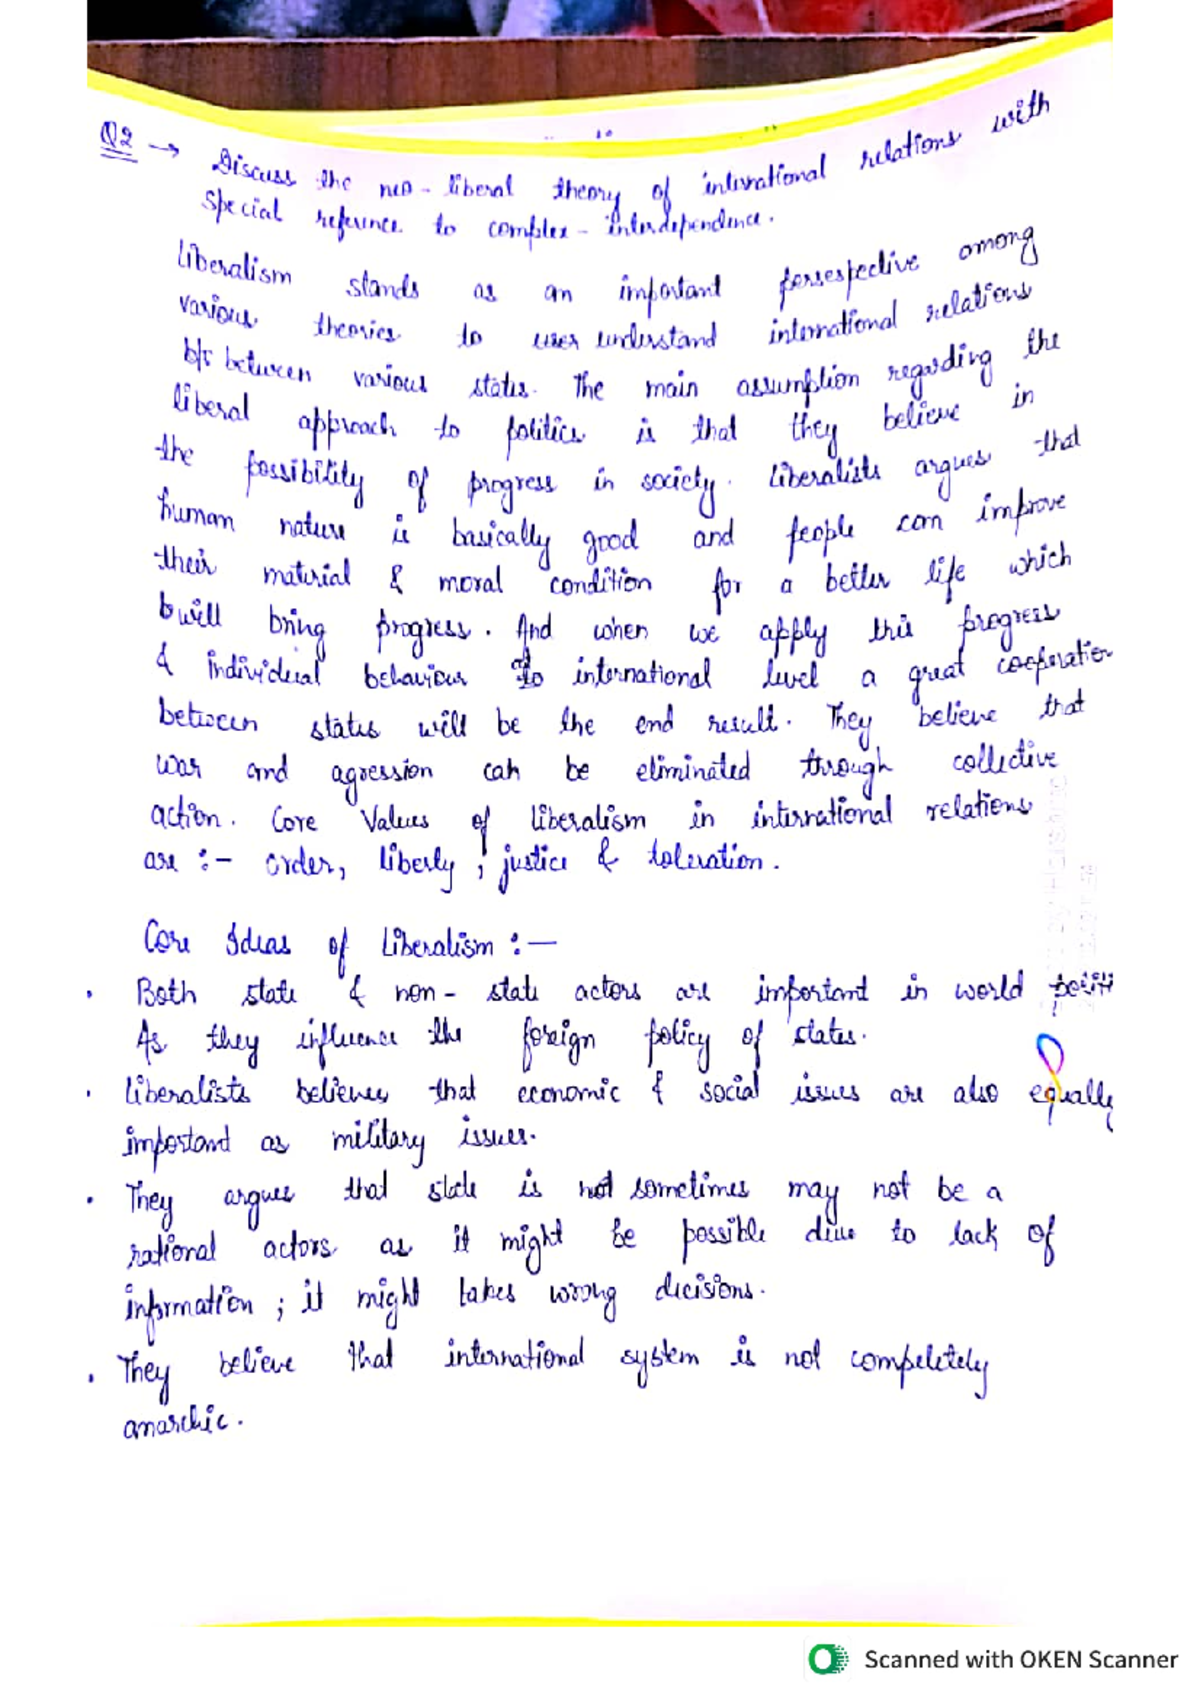 Q2 → Discuss the neo-liberal theory of international relations with
special reference to complex-interdependence.
Liberalism stands as an important persespective among
various theories to understand international relations
b/s between various states. The main assumption regarding the
liberal approach to politics is that they believe in
the possibility of progress in society. Liberalists argues that
human nature is basically good and people can improve
their material & moral condition for a better life which
will bring progress. And when we apply this progress
& individual behaviour to international level a great cooperation
between states will be the end result. They believe that
war and agression can be eliminated through collective
action. Core Values of liberalism in international relations
are :- order, liberty, justice & toleration.
Core Ideas of Liberalism :-
• Both state & non-state actors are important in world
As they influence the foreign policy of states.
• Liberalists believes that economic & social issues are also equally
important as military issues.
• They argues that state is not sometimes may not be a
rational actors as it might be possible due to lack of
information ; it might takes wrong decisions.
• They believe that international system is not compeletely
anarchic.
Scanned with OKEN Scanner